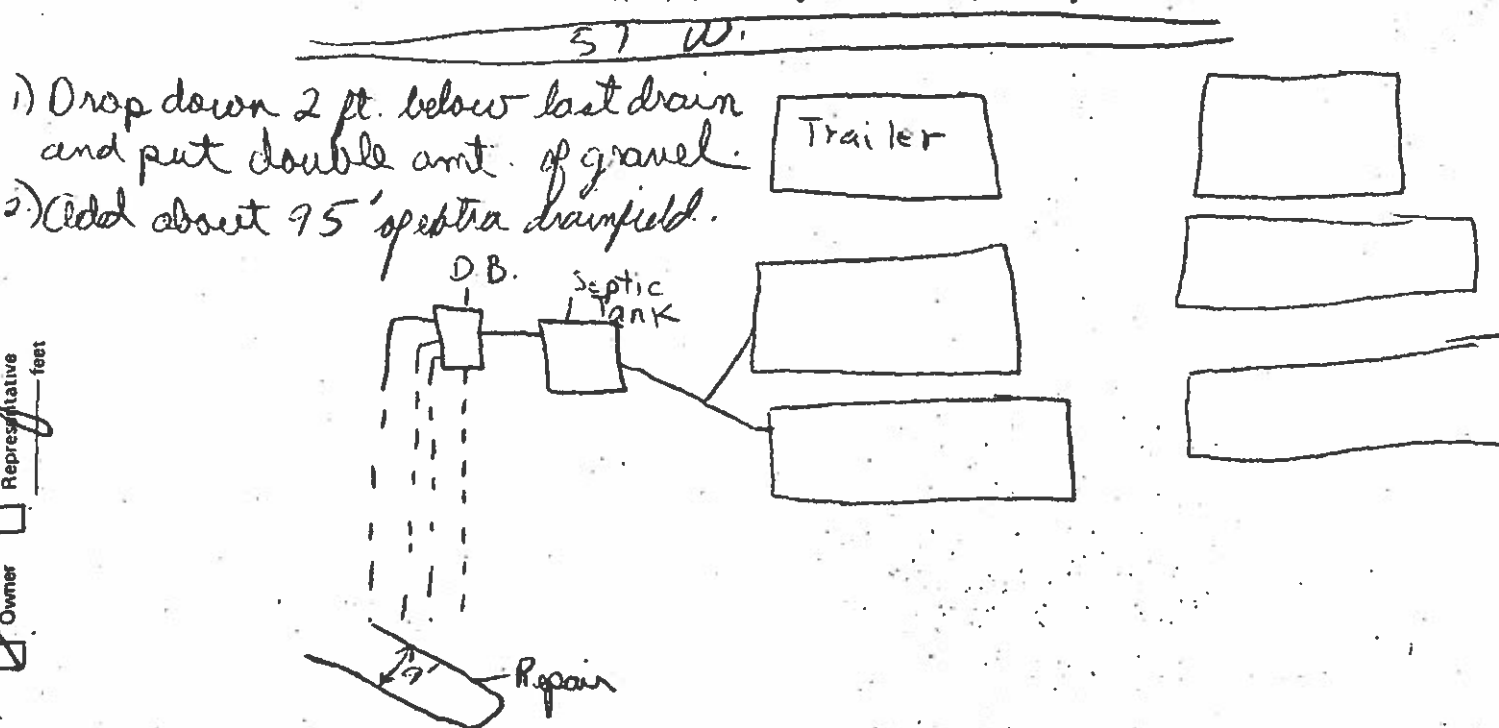 57 W.
1) Drop down 2 ft. below last drain
and put double amt. of gravel.
2.) Add about 95' of extra drainfield.
Trailer
D.B.
Septic
Tank
Representative
feet
Owner
Repair